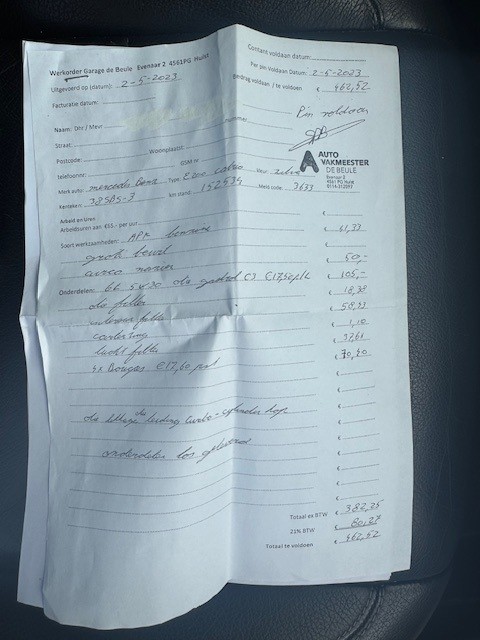 Werkorder Garage de Beule Evenaar 2 4561PG Hulst
Contant voldaan datum:
Uitgevoerd op (datum): 2-5-2023
Per pin voldaan Datum: 2-5-2023
Facturatie datum
Bedrag voldaan / te voldoen € 462,52
Pin voldaan
Naam: Dhr / Mevr
Straat: nummer
Postcode: Woonplaats:
AUTO
VAKMEESTER
DE BEULE
Evenaar 2
4561 PG Hulst
0114-312092
Telefoonnr: GSM nr
Merk auto: mercedes Benz Type: E200 cabrio Kleur: zilver
Kenteken: km stand: Merk code: 3633
Arbeid en Uren
Arbeidsuren aan €65.- per uur €
Soort werkzaamheden: APK benzine € 41,33
grote beurt €
€ 50,-
Onderdelen: 6L 5W30 olie C3 €17,50 p/L € 105,-
olie filter € 18,38
interieur filter € 58,93
carterring € 1,10
lucht filter € 37,61
4x Bougies €17,60 p/st € 70,40
olie lekkage olie leiding turbo-cylinder kop
onderdelen los geleverd
Totaal ex BTW € 382,25
21% BTW € 80,27
Totaal te voldoen € 462,52